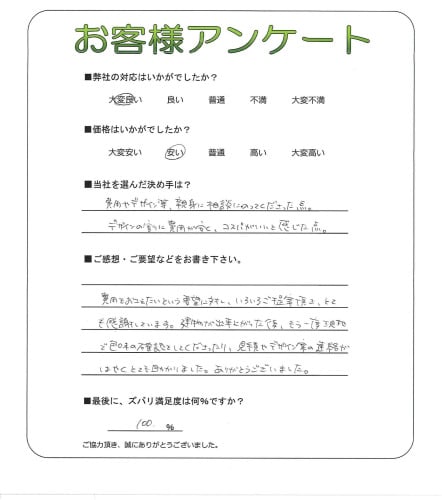 お客様アンケート
■弊社の対応はいかがでしたか？
大変良い 良い 普通 不満 大変不満
■価格はいかがでしたか？
大変安い 安い 普通 高い 大変高い
■当社を選んだ決め手は？
費用やデザイン等、親身に相談にのってくださった点。
デザインの割に費用が安く、コスパがいいと感じた点。
■ご感想・ご要望などをお書き下さい。
費用をおさえたいという要望に対し、いろいろご提案頂き、とて
も感謝しています。建物が出来上がった後、もう一度現地
で色味の確認をしてくださったり、見積やデザイン案の連絡が
はやくとても助かりました。ありがとうございました。
■最後に、ズバリ満足度は何%ですか？
100 %
ご協力頂き、誠にありがとうございました。